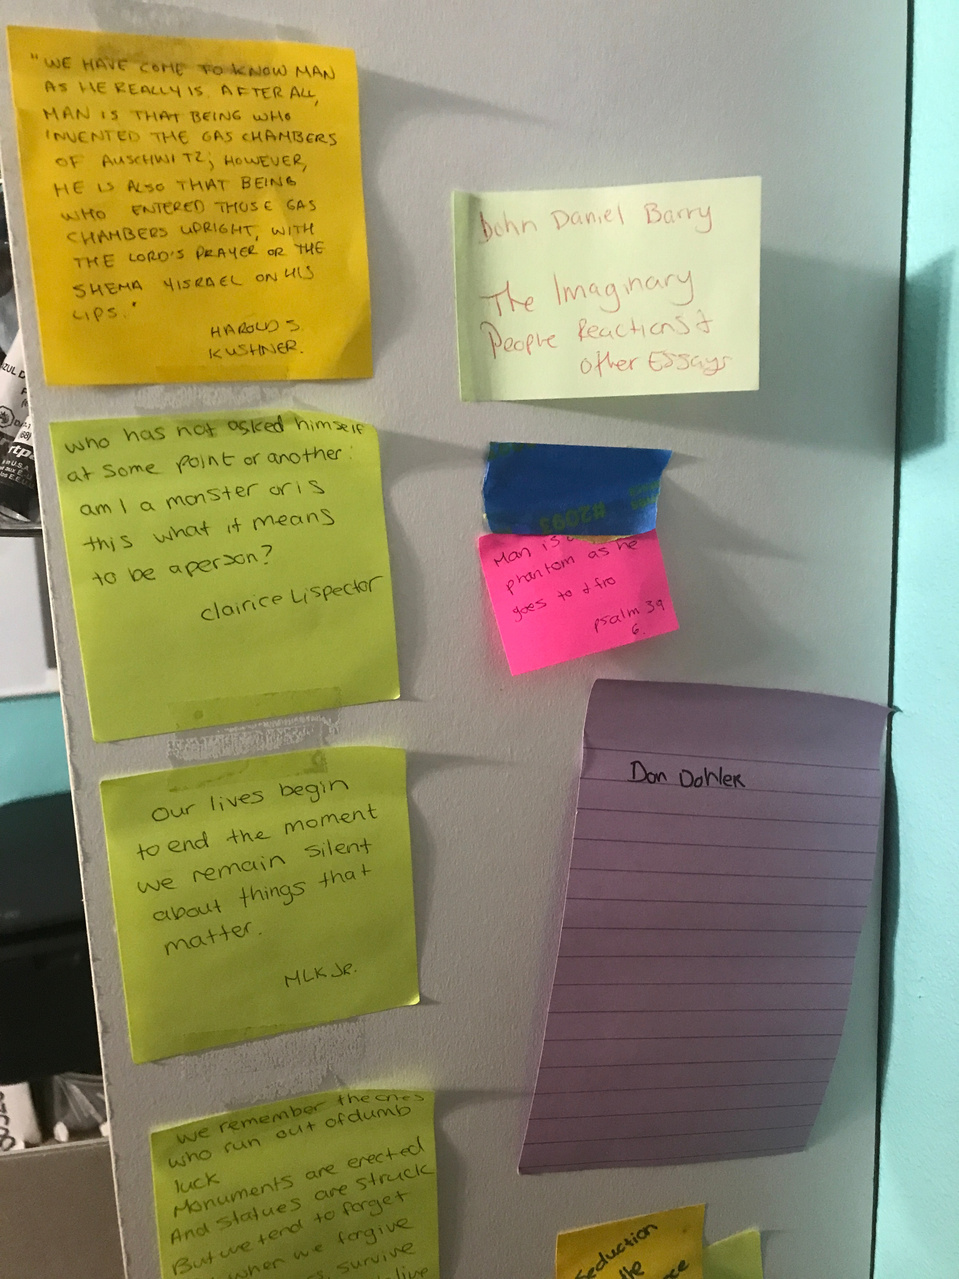 "WE HAVE COME TO KNOW MAN
AS HE REALLY IS. AFTER ALL,
MAN IS THAT BEING WHO
INVENTED THE GAS CHAMBERS
OF AUSCHWITZ; HOWEVER,
HE IS ALSO THAT BEING
WHO ENTERED THOSE GAS
CHAMBERS UPRIGHT, WITH
THE LORD'S PRAYER OR THE
SHEMA YISRAEL ON HIS
LIPS."
HAROLD S.
KUSHNER.
who has not asked himself
at some point or another:
am I a monster or is
this what it means
to be a person?
Clairice Lispector
Our lives begin
to end the moment
we remain silent
about things that
matter.
MLK JR.
We remember the ones
who run out of dumb
luck
Monuments are erected
And statues are struck
But we tend to forget
when we forgive
survive
live
John Daniel Barry
The Imaginary
People Reactions &
other Essays
#2093
Man is
phantom as he
goes to & fro
psalm 39
6.
Don Dohler
Seduction